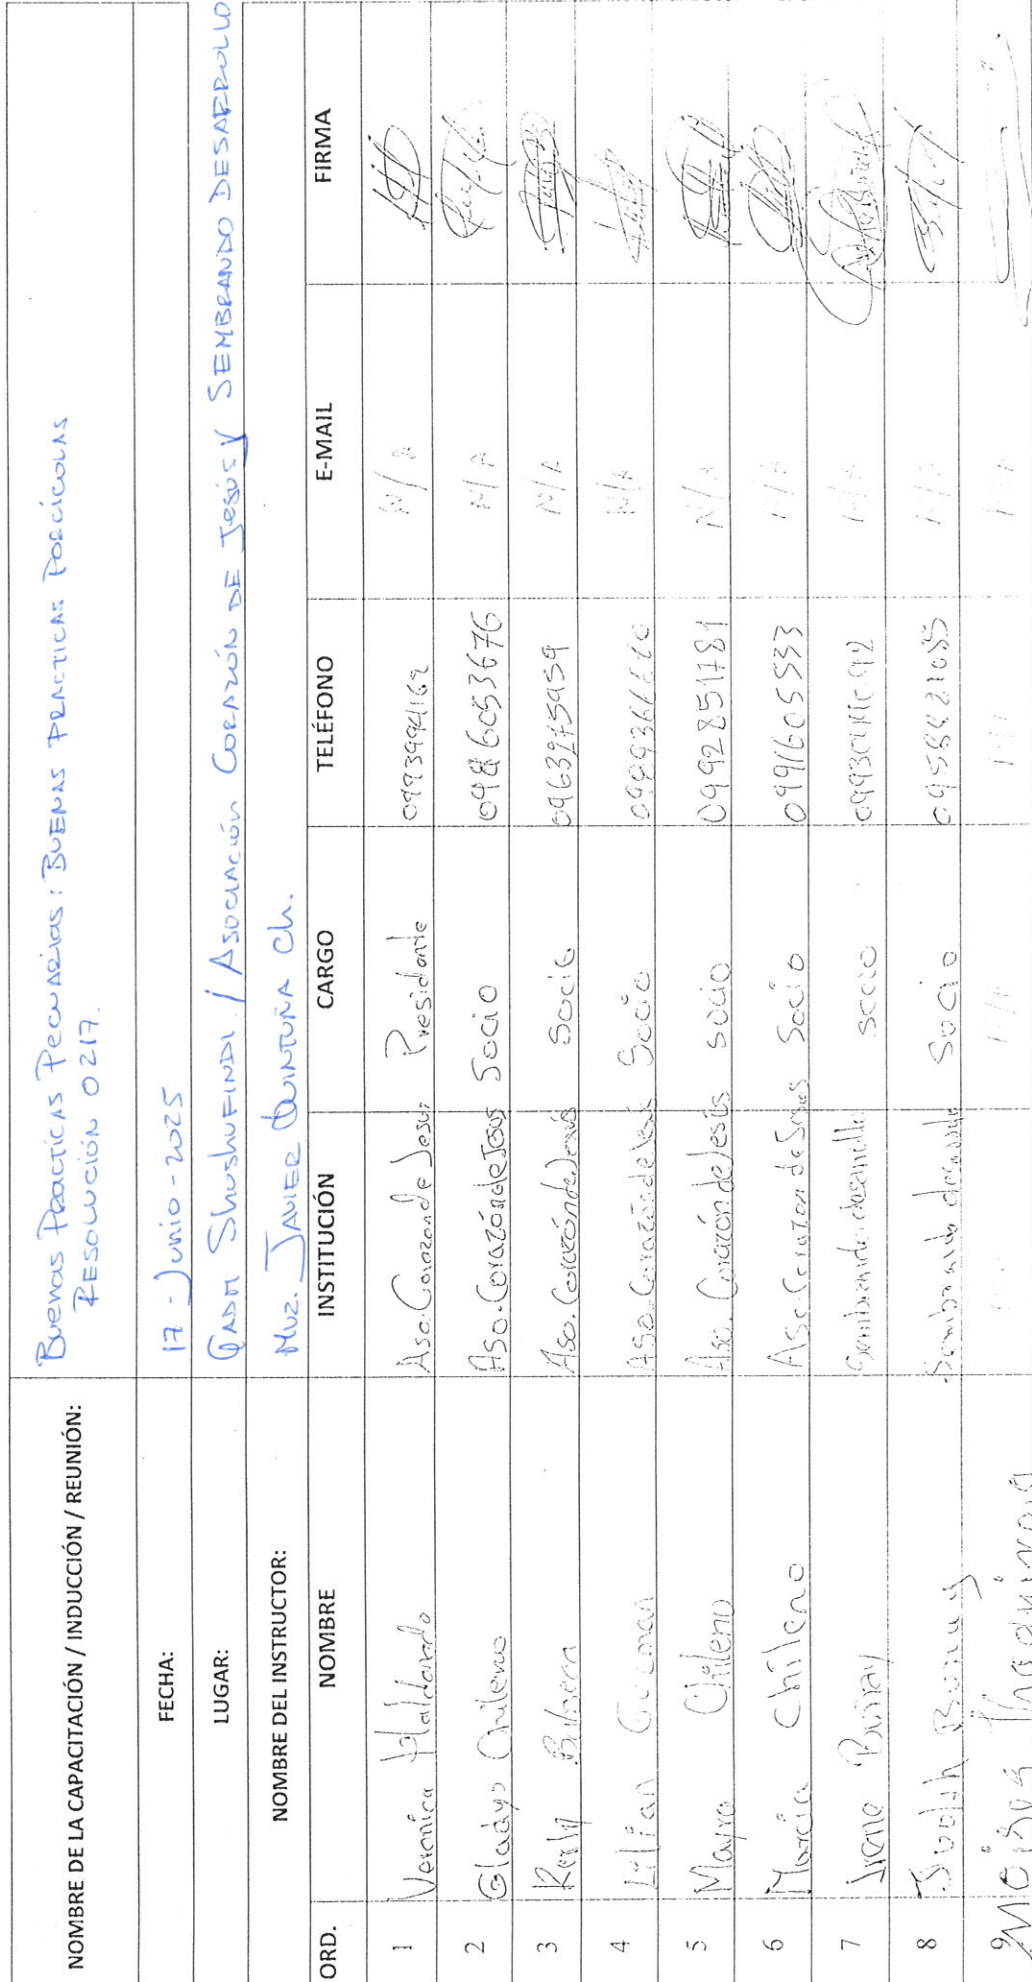 NOMBRE DE LA CAPACITACIÓN / INDUCCIÓN / REUNIÓN: Buenas Practicas Pecuarias: BUENAS PRACTICAS PORCÍCOLAS
RESOLUCIÓN 0217.
FECHA: 17 - Junio - 2025
LUGAR: GADM ShushuFINDI / ASOCIACIÓN CORAZÓN DE JESÚS Y SEMBRANDO DESARROLLO
NOMBRE DEL INSTRUCTOR: Mvz. JAVIER QUINTUÑA Ch.
ORD. NOMBRE INSTITUCIÓN CARGO TELÉFONO E-MAIL FIRMA
1 Veronica Maldonado Aso. Corazon de Jesus Presidente N/A
2 Gladys Chileno Aso. Corazón de Jesus Socio 0986053676 N/A
3 Aso. Corazón de Jesús Socio 0963275959 N/A
4 Lilian Aso. Corazón de Jesús Socio N/A
5 Mayra Chileno Aso. Corazón de Jesús Socio 0992851781 N/A
6 Marcia Chileno Aso Corazon de Jesus Socio 0991605533 N/A
7 Irene Sembrando desarrollo socio N/A
8 Judith Sembrando desarrollo Socio N/A
9 Moises N/A N/A N/A